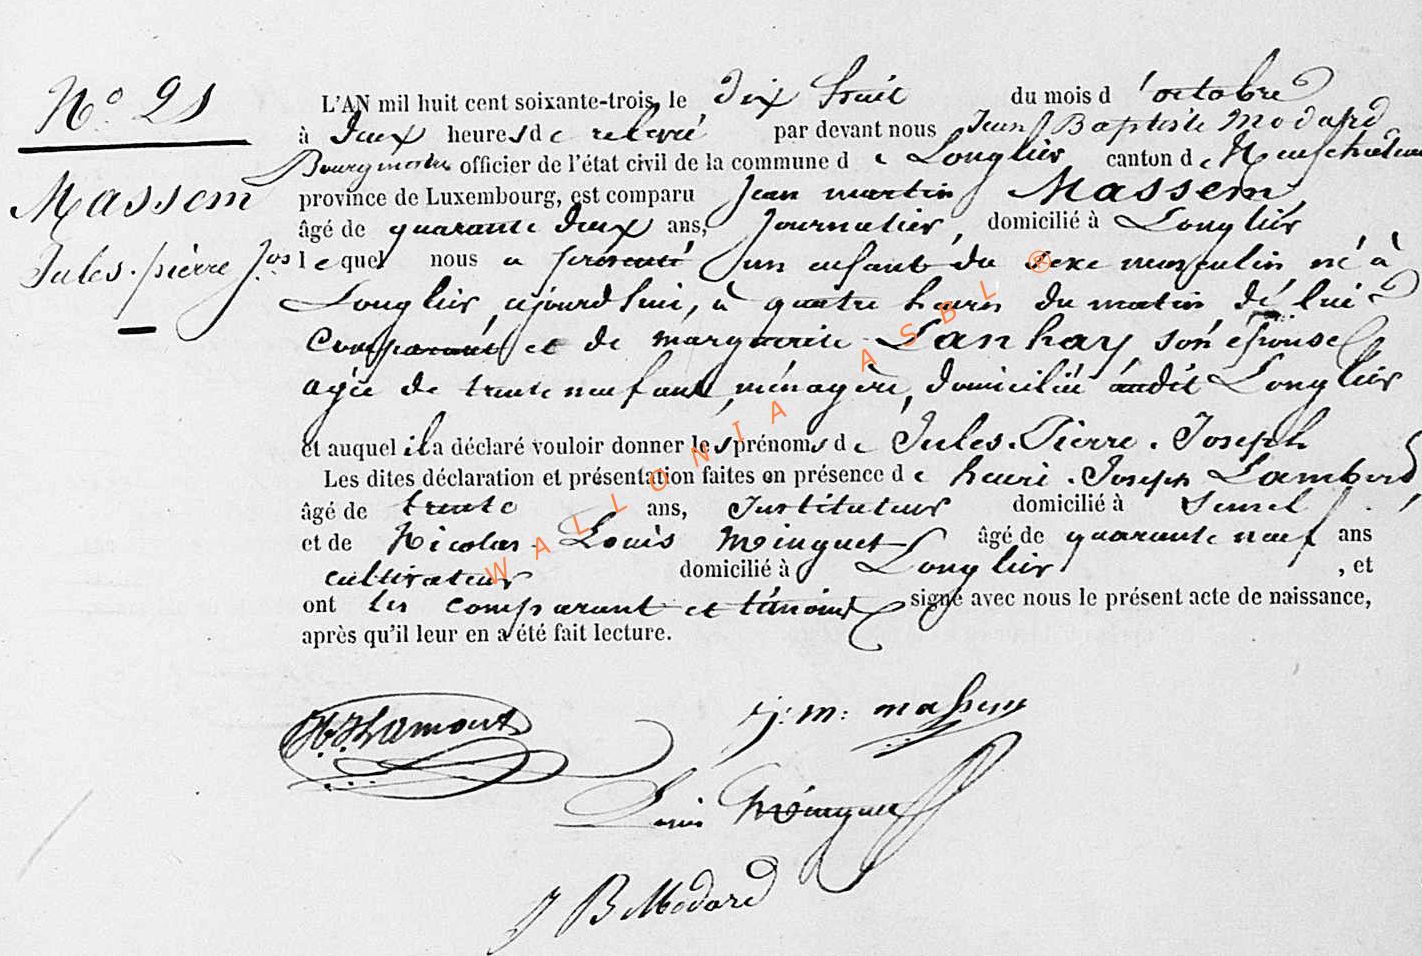 N° 21
Massem
Jules-pierre Jos
L'AN mil huit cent soixante-trois, le Dix huit du mois d'octobre
à Deux heures de relevée par devant nous Jean Baptiste Modard
Bourgmestre officier de l'état civil de la commune de Longlier canton de Neufchateau
province de Luxembourg, est comparu Jean martin Massem,
âgé de quarante Deux ans, Journalier, domicilié à Longlier
lequel nous a présenté un enfant du sexe masculin, né à
Longlier, ajourd'hui, à quatre heures du matin, dé lui
Comparant, et de marguerite Lanhay, son épouse,
agée de trente neuf ans, ménagère, domiciliée audit Longlier
et auquel il a déclaré vouloir donner les prénoms de Jules-Pierre-Joseph
Les dites déclaration et présentation faites en présence de henri-Joseph
âgé de trente ans, Instituteur domicilié à
et de Nicolas-Louis Minguet âgé de quarante neuf ans
cultivateur domicilié à Longlier, et
ont les comparant et témoins signé avec nous le présent acte de naissance,
après qu'il leur en a été fait lecture.
j: m: massem
Louis Minguet
J B Modard
WALLONIA ASBL ®